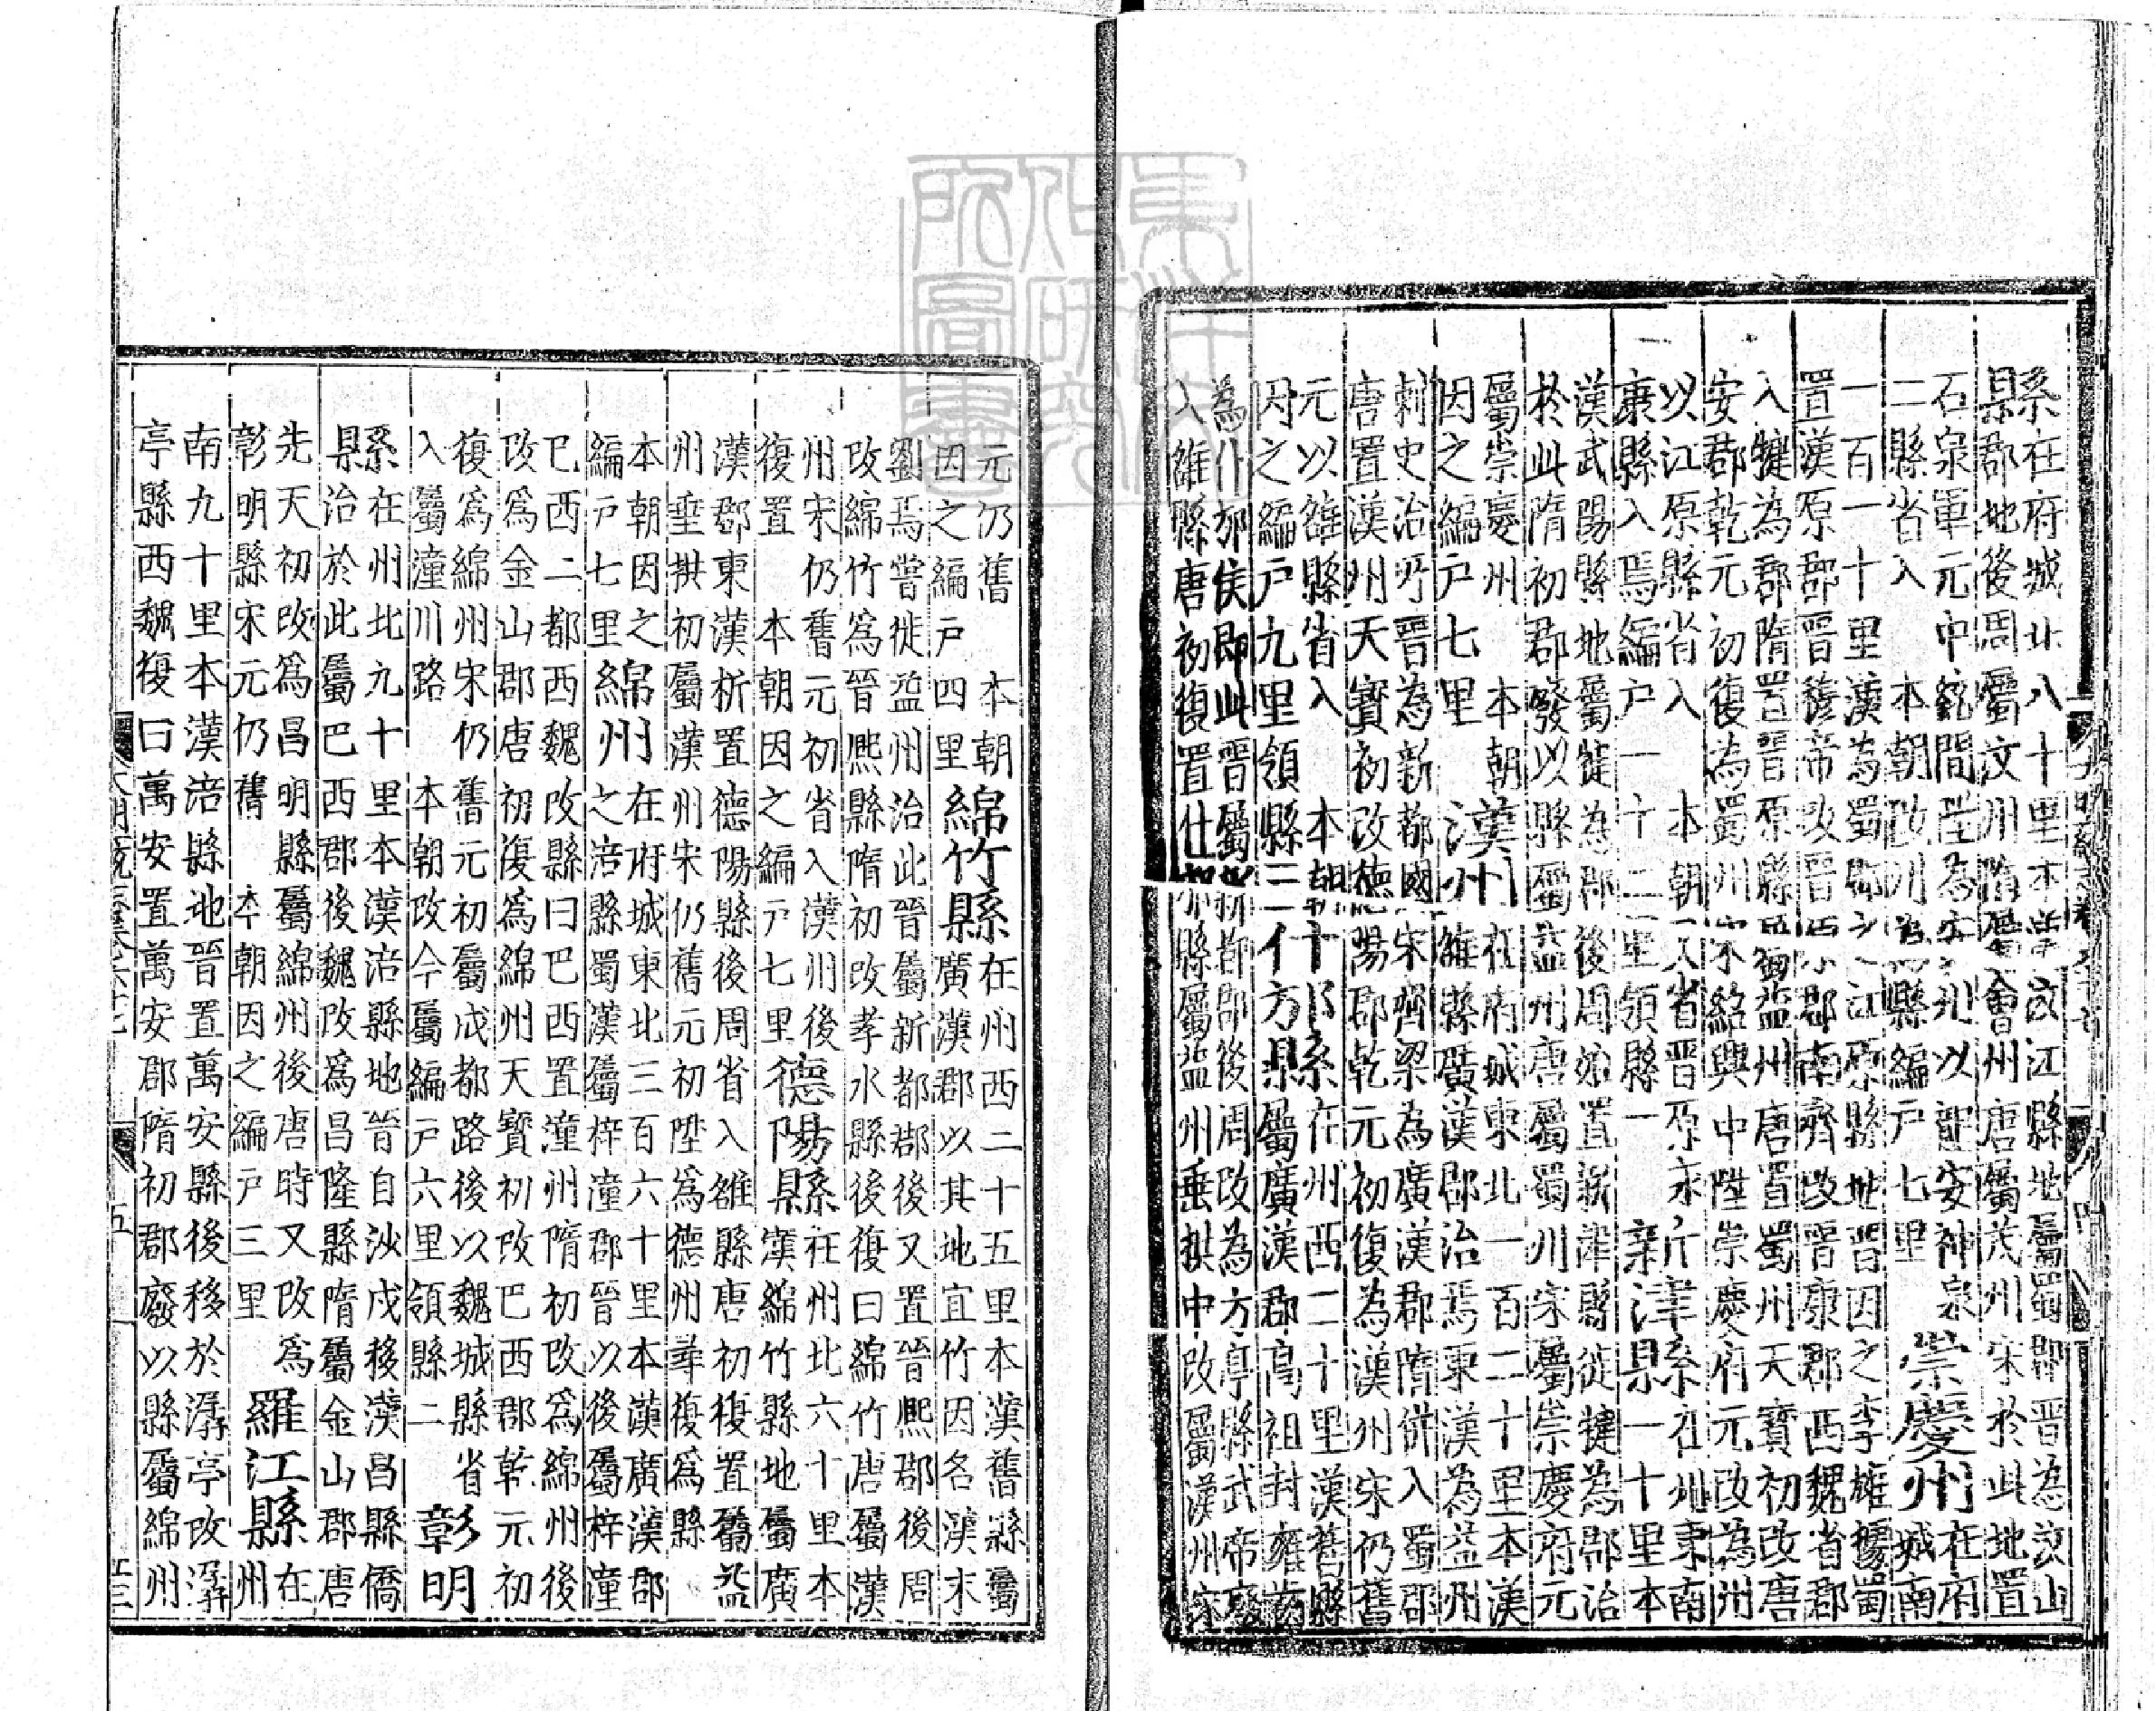 縣
在府城北八十里本漢汶江縣地屬蜀郡晉為汶山
郡地後周屬汶州隋屬會州唐屬茂州宋於此地置
石泉軍元中統間陞為安州以龍安神泉
二縣省入　本朝改州為縣編戶七里
崇慶州
在府
城南
一百一十里漢為蜀郡之江原縣地晉因之李雄據蜀
置漢原郡晉穆帝改晉原郡南齊改晉康郡西魏省郡
入犍為郡隋置晉原縣屬益州唐置蜀州天寶初改唐
安郡乾元初復為蜀州宋紹興中陞崇慶府元改為州
以江原縣省入　本朝又省晉原永
康縣入焉編戶一十二里領縣一
新津縣
在州東南
一十里本
漢武陽縣地屬犍為郡後周始置新津縣徙犍為郡治
於此隋初郡廢以縣屬益州唐屬蜀州宋屬崇慶府元
屬崇慶州　本朝
因之編戶七里
漢州
在府城東北一百二十里本漢
雒縣廣漢郡治焉東漢為益州
刺史治所晉為新都國宋齊梁為廣漢郡隋併入蜀郡
唐置漢州天寶初改德陽郡乾元初復為漢州宋仍舊
元以雒縣省入　本朝
因之編戶九里領縣三
什邡縣
在州西二十里漢舊縣
屬廣漢郡高祖封雍齒
為什邡侯即此晉屬新都郡後周改為方亭縣武帝廢
入雒縣唐初復置什邡縣屬益州垂拱中改屬漢州宋
元仍舊　本朝
因之編戶四里
綿竹縣
在州西二十五里本漢舊縣屬
廣漢郡以其地宜竹因名漢末
劉焉嘗徙益州治此晉屬新都郡後又置晉熙郡後周
改綿竹為晉熙縣隋初改孝水縣後復曰綿竹唐屬漢
州宋仍舊元初省入漢州後
復置　本朝因之編戶七里
德陽縣
在州北六十里本
漢綿竹縣地屬廣
漢郡東漢析置德陽縣後周省入雒縣唐初復置屬益
州垂拱初屬漢州宋仍舊元初陞為德州尋復為縣
本朝因之
編戶七里
綿州
在府城東北三百六十里本漢廣漢郡
之涪縣蜀漢屬梓潼郡晉以後屬梓潼
巴西二郡西魏改縣曰巴西置潼州隋初改為綿州後
改為金山郡唐初復為綿州天寶初改巴西郡乾元初
復為綿州宋仍舊元初屬成都路後以魏城縣省
入屬潼川路　本朝改今屬編戶六里領縣二
彰明
縣
在州北九十里本漢涪縣地晉自沙戍移漢昌縣僑
治於此屬巴西郡後魏改為昌隆縣隋屬金山郡唐
先天初改為昌明縣屬綿州後唐時又改為
彰明縣宋元仍舊　本朝因之編戶三里
羅江縣
在
州
南九十里本漢涪縣地晉置萬安縣後移於潺亭改潺
亭縣西魏復曰萬安置萬安郡隋初郡廢以縣屬綿州